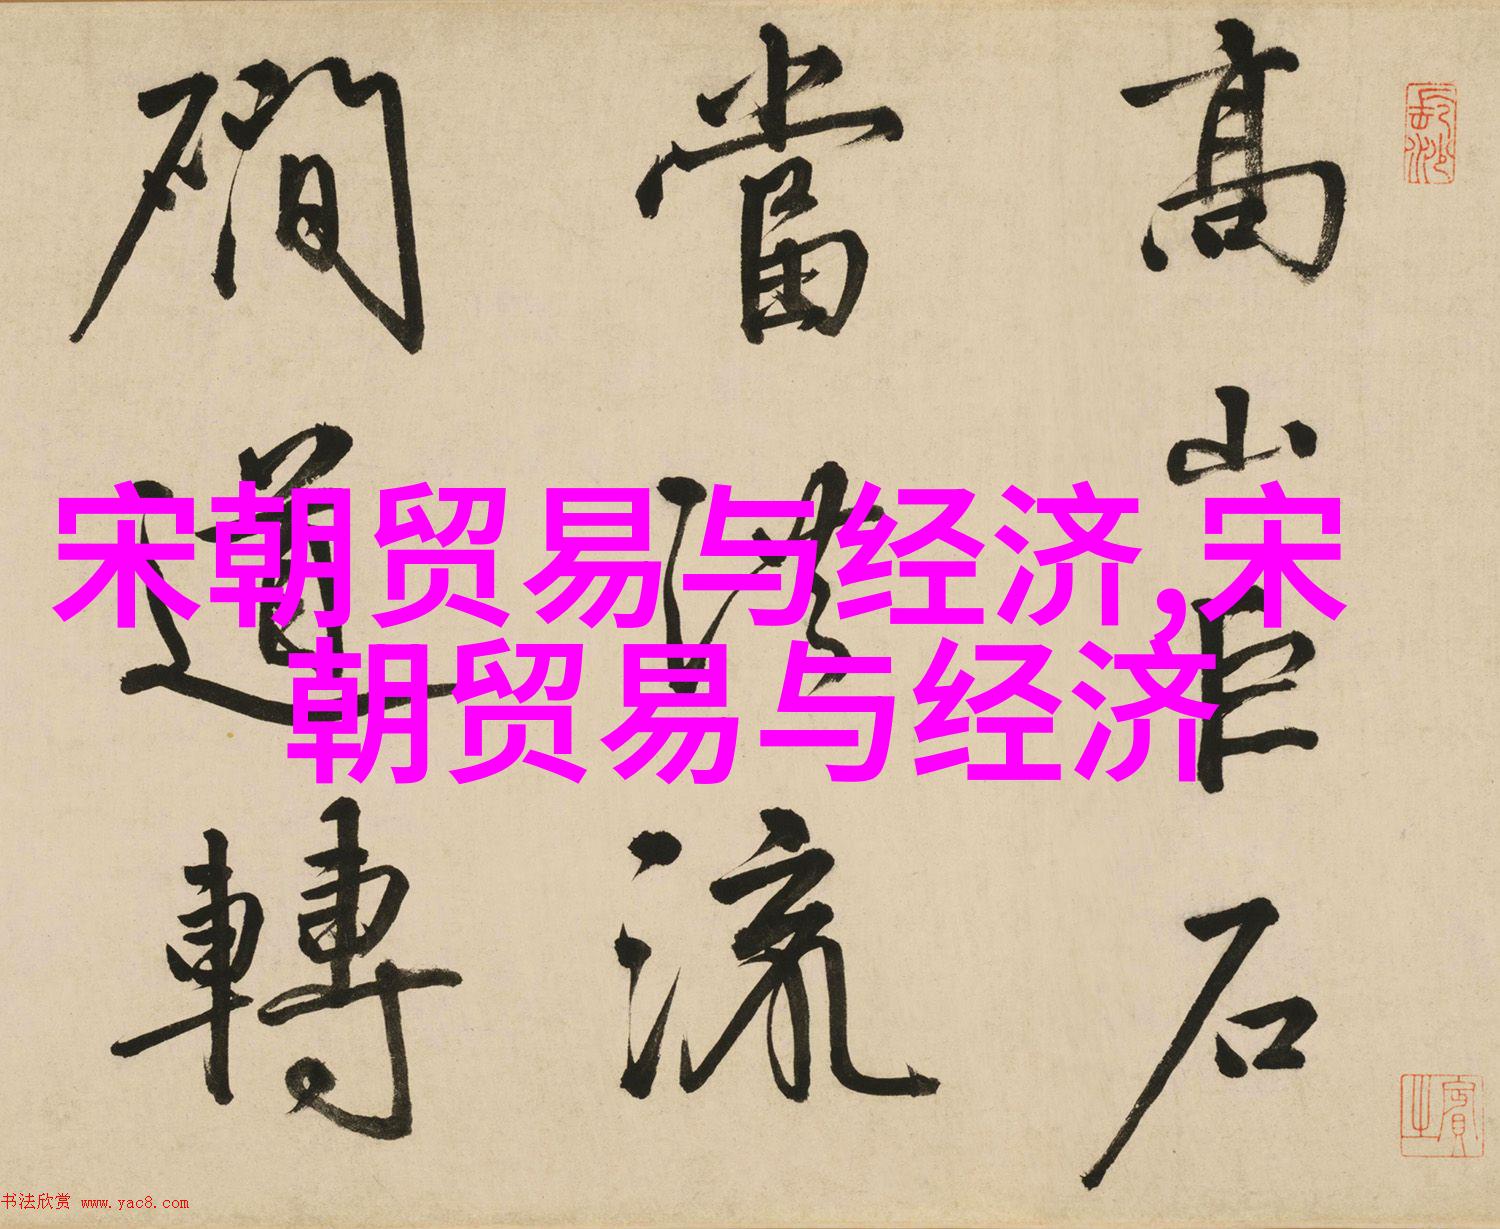 宋朝贸易与经济,宋
朝贸易与经济
長沙
高山巨石
當洪流
磵道轉
賓之
书法欣赏 www.yac8.com